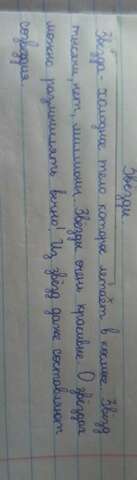 Звёзды.
Звезда - холодное тело которое летает в космосе. Звёзд
тысячи, нет, миллионы. Звёзды очень красивые. О звёздах
можно размышлять вечно! Из звёзд даже составляют
созвездия